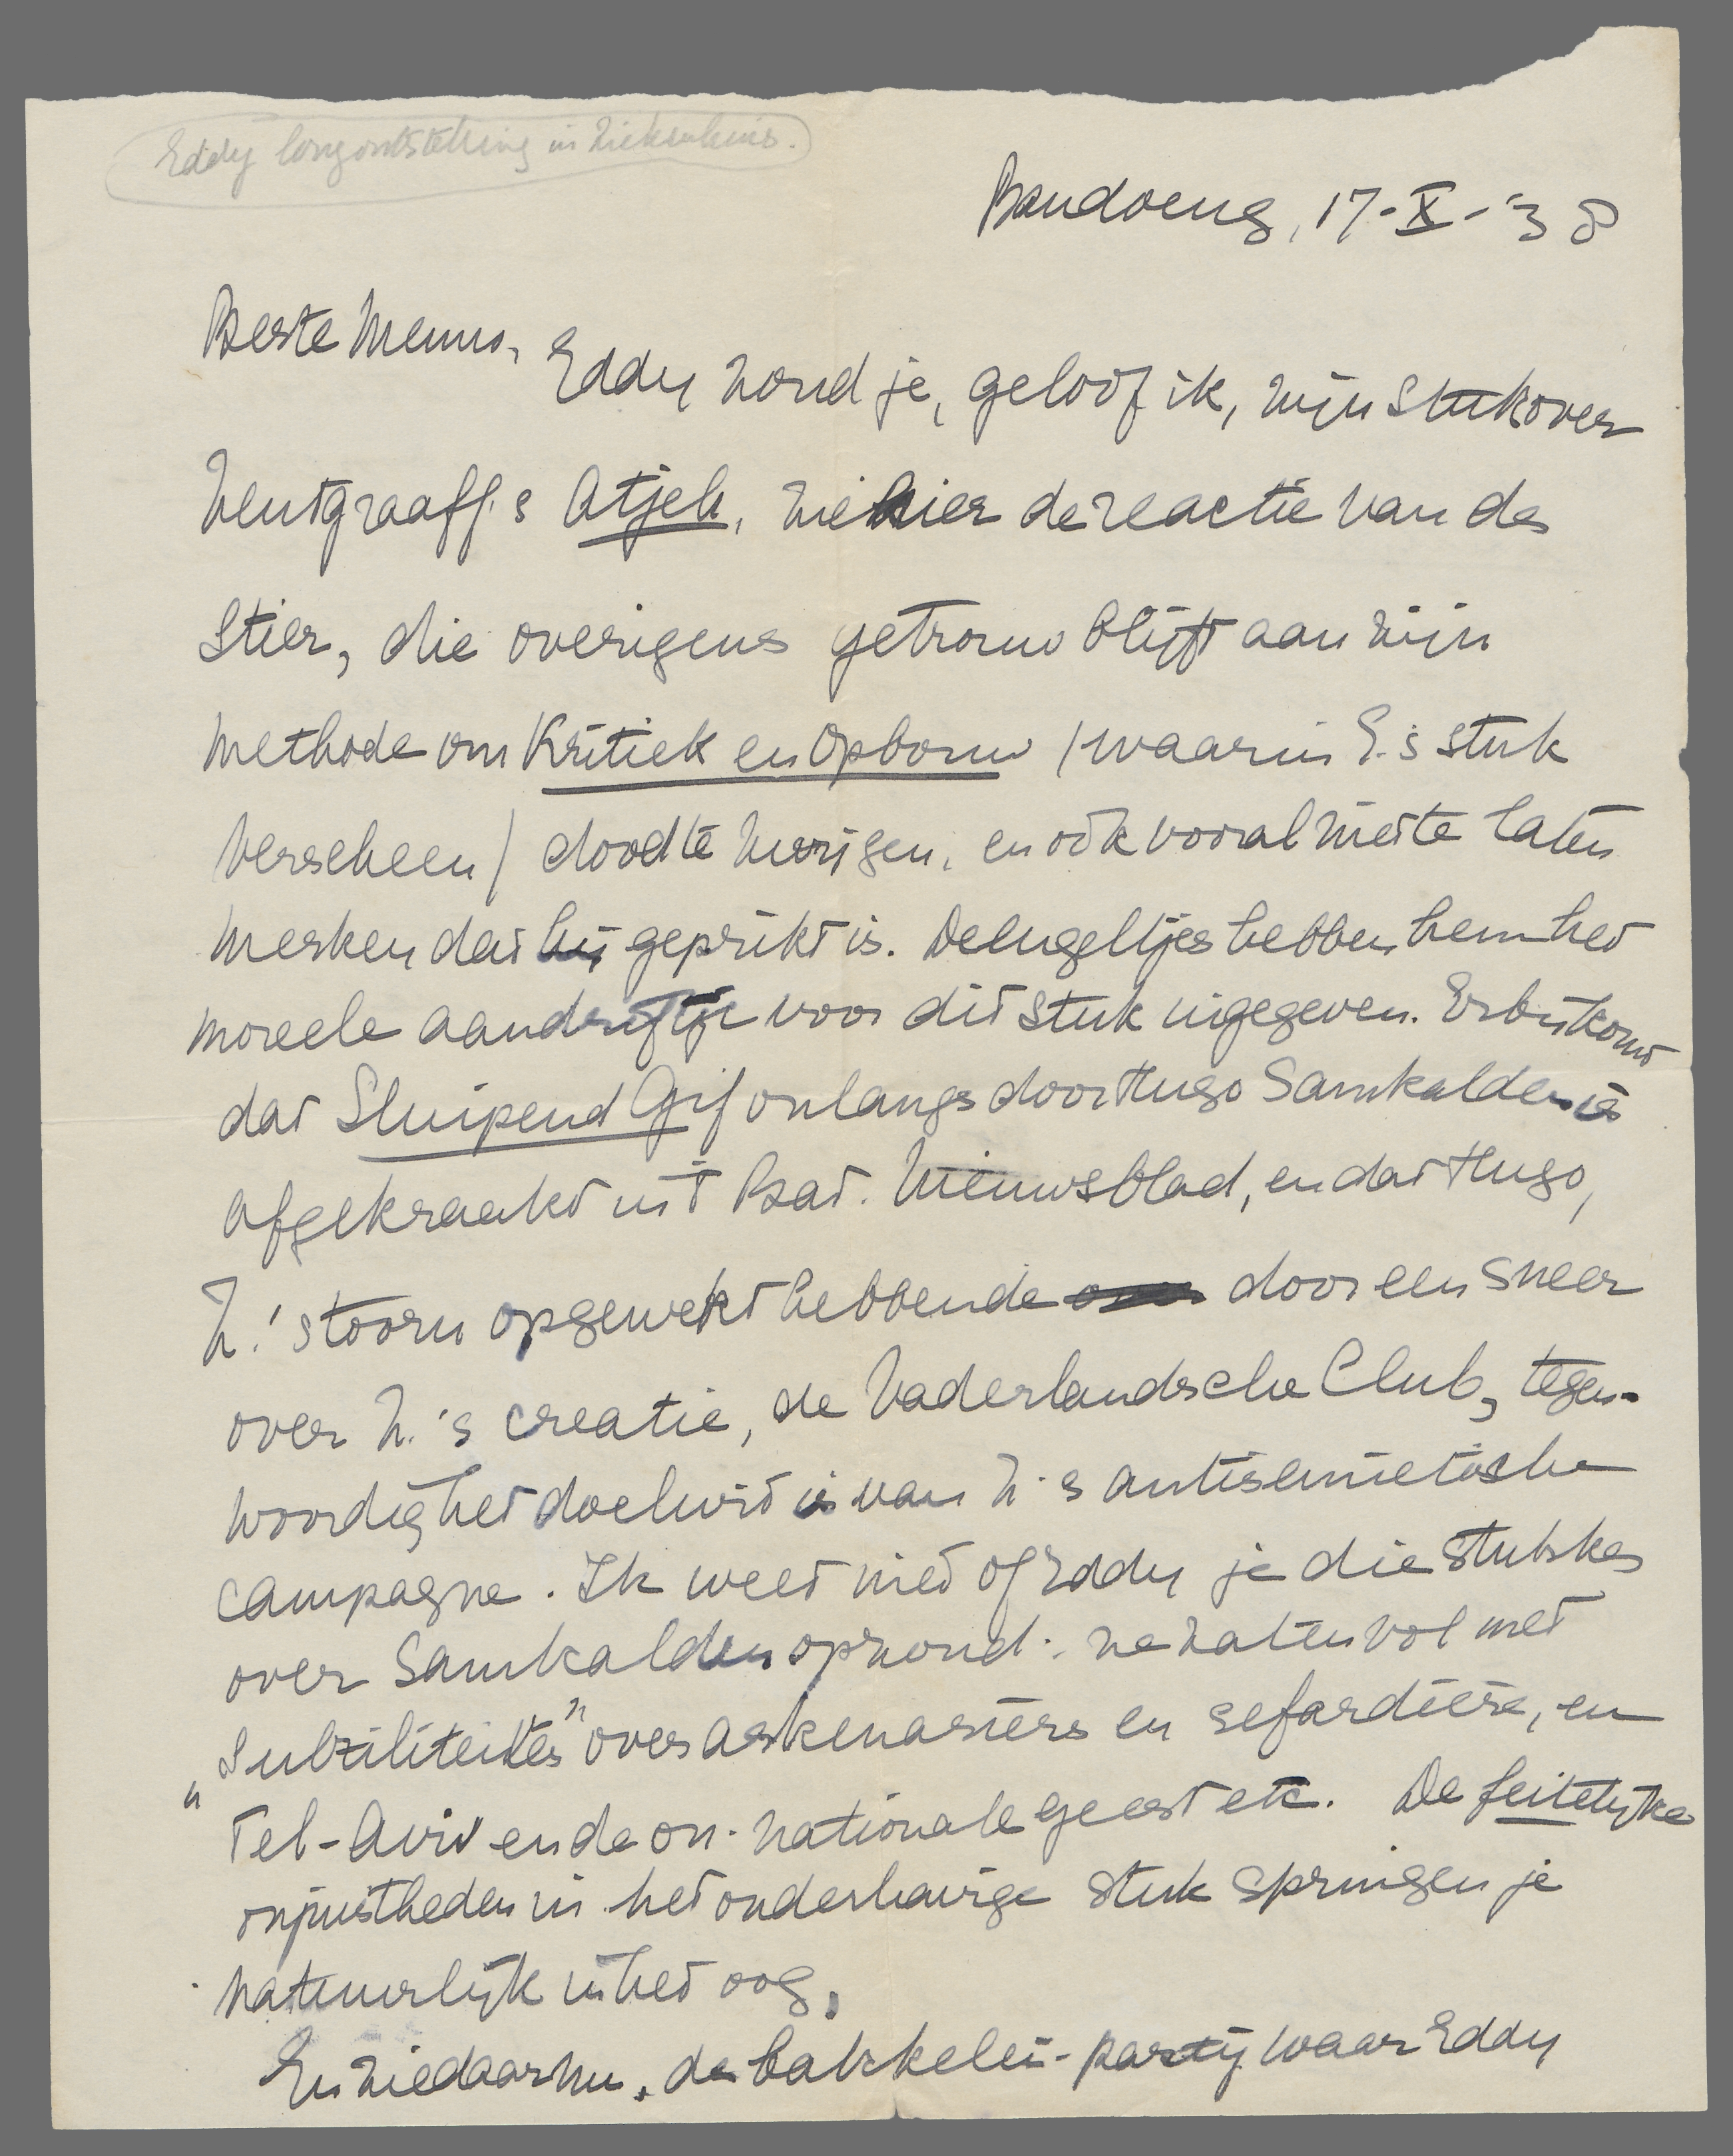 Eddy longontsteking in Ziekenhuis.
Bandoeng, 17-X-'38
Beste Menno,
Eddy zond je, geloof ik, zijn stuk over
Zentgraaff's Atjeh, zie hier de reactie van de
Stier, die overigens getrouw blijft aan zijn
methode om Kritiek en Opbouw (waarin E.'s stuk
verscheen) dood te zwijgen, en ook vooral niet te laten
merken dat hij geprikt is. De Engeltjes hebben hem het
moreele aandriftje voor dit stuk ingegeven. Erbij komt
dat Sluipend Gif onlangs door Hugo Samkalden is
afgekraakt in 't Bat. Nieuwsblad, en dat Hugo,
Z.'s toorn opgewekt hebbende door een sneer
over Z.'s creatie, de Vaderlandsche Club, tegen-
woordig het doelwit is van Z.'s antisemietische
campagne. Ik weet niet of Eddy je die stukskes
over Samkalden opzond: ze zaten vol met
"subtiliteiten" over Askenasiërs en sefardiërs, en
Tel-Aviv en de on-nationale geest etc. De feitelijke
onjuistheden in het onderhavige stuk springen je
natuurlijk in het oog.
En ziedaar nu, de bakkelei-partij waar Eddy